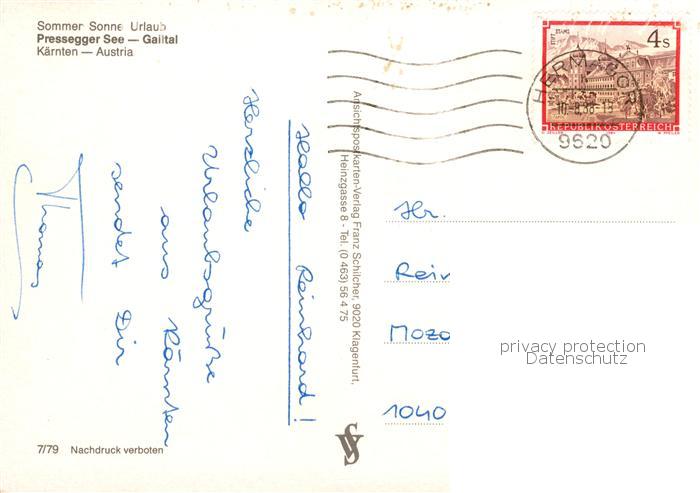 Sommer Sonne Urlaub
Pressegger See — Gailtal
Kärnten — Austria
Hallo Reinhard!
Herzliche
Urlaubsgrüße
aus Kärnten
sendet Dir
Thomas
7/79 Nachdruck verboten
Ansichtspostkarten-Verlag Franz Schilcher, 9020 Klagenfurt,
Heinzgasse 8 - Tel. (0 463) 56 4 75
4s
REPUBLIK ÖSTERREICH
HERMAGOR
9620
Hr.
Rein
Mozo
1040
privacy protection
Datenschutz